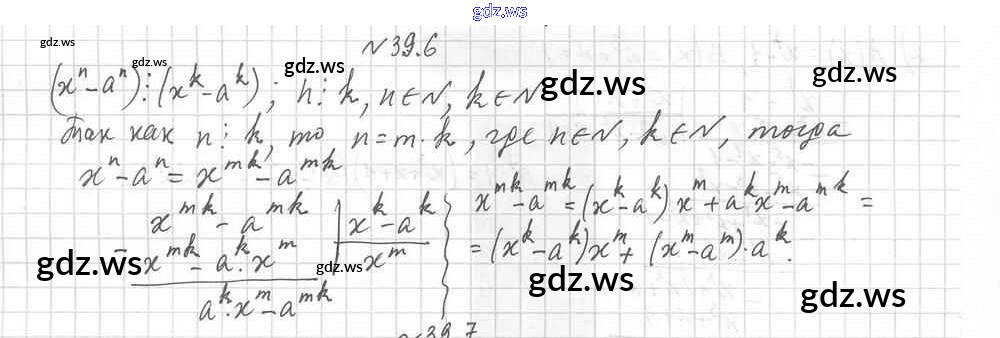 gdz.ws
gdz.ws
№39.6
gdz.ws
gdz.ws
gdz.ws
gdz.ws
(xⁿ-aⁿ)⋮(xᵏ-aᵏ); n⋮k, n∈N, k∈N
Так как n⋮k, то n=m·k, где n∈N, k∈N, тогда
xⁿ-aⁿ = xᵐᵏ-aᵐᵏ
xᵐᵏ-aᵐᵏ | xᵏ-aᵏ
- xᵐᵏ-aᵏ·xᵐ | xᵐ
aᵏ·xᵐ-aᵐᵏ
xᵐᵏ-aᵐᵏ = (xᵏ-aᵏ)xᵐ+aᵏxᵐ-aᵐᵏ =
= (xᵏ-aᵏ)xᵐ + (xᵐ-aᵐ)·aᵏ.
gdz.ws
gdz.ws
gdz.ws
gdz.ws
№39.7